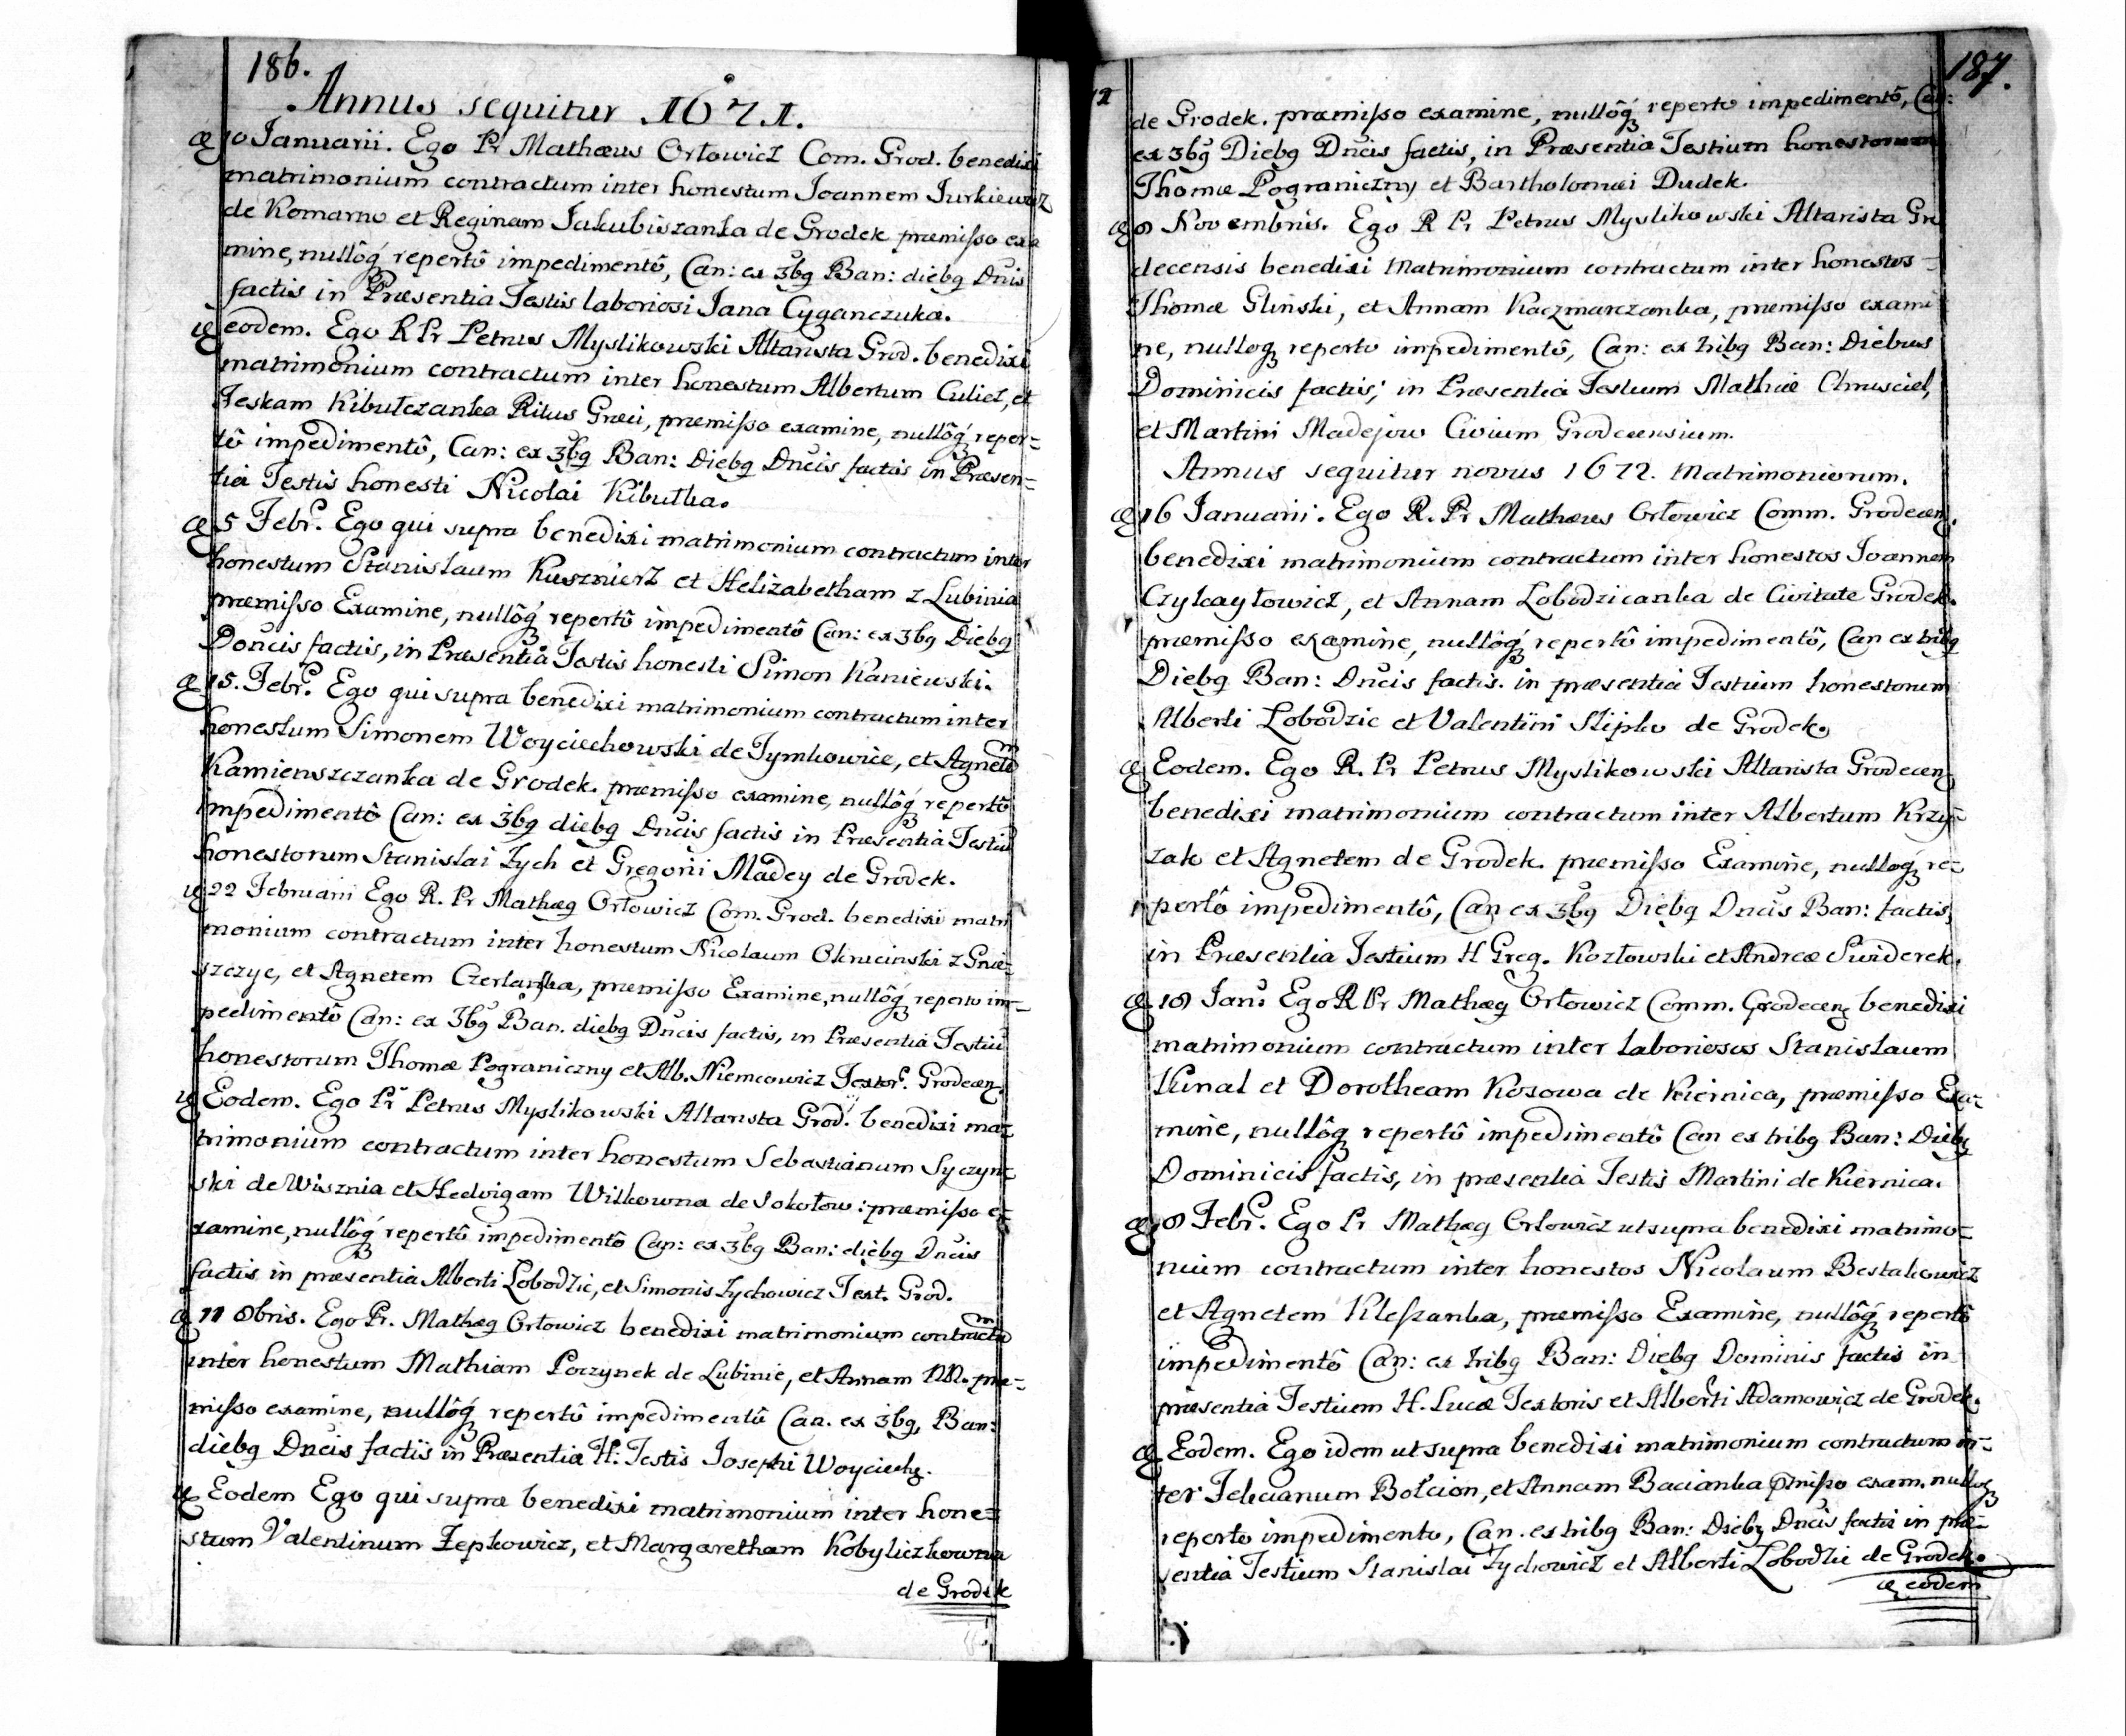 186.
Annus sequitur 1671.
10 Januarii. Ego Pr Mathæus Orłowicz Com. Grod. benedixi
matrimonium contractum inter honestum Joannem Jurkiewicz
de Komarno et Reginam Jakubiszanka de Grodek præmisso exa
mine, nullôq́ repertô impedimentô, Can: ex 3bq Ban: diebq Dnis
factis in Præsentia Testis laboriosi Jana Cyganczuka.
eodem. Ego R Pr Petrus Myslikowski Altarista Grod. benedixi
matrimonium contractum inter honestum Albertum Culicz, et
Teskam Kibułczanka Ritus Græci, præmisso examine, nullôq́ reper=
tô impedimentô, Can: ex 3bq Ban: Diebq Dncis factis in Præsen=
tia Testis honesti Nicolai Kibułka.
5 Febr. Ego qui supra benedixi matrimonium contractum inter
honestum Stanislaum Kusznierz et Helizabetham z Lubinia
præmisso Examine, nullôq́ repertô impedimentô Can: ex 3bq Diebq
Doncis factis, in Præsentia Testis honesti Simon Kaniewski.
15. Febr. Ego qui supra benedixi matrimonium contractum inter
honestum Simonem Woyciechowski de Tymkowice, et Agnetẽ
Kamienszczanka de Grodek. præmisso examine, nullôq́ repertô
impedimentô Can: ex 3bq diebq Dncis factis in Præsentia Testiũ
honestorum Stanislai Zych et Gregorii Madey de Grodek.
22 Februarii Ego R. Pr Mathæq Orłowicz Com. Grod. benedixi matri
monium contractum inter honestum Nicolaum Okrucinski z Gnie=
szczyc, et Agnetem Czerlanska, præmisso Examine, nullôq́ reperto im=
pedimentô Can: ex 3bq Ban. diebq Dncis factis, in Præsentia Testiũ
honestorum Thomæ Pograniczny et Alb. Niemcowicz Textor. Grodecen.
Eodem. Ego Pr Petrus Myslikowski Altarista Grod. benedixi ma=
trimonium contractum inter honestum Sebastianum Syczyn=
ski de Wisznia et Hedvigam Wilkowna de Sokołow: præmisso e=
xamine, nullôq́ repertô impedimentô Can: ex 3bq Ban: diebq Dncis
factis in præsentia Alberti Lobodzic, et Simonis Zychowicz Test. Grod.
11 8bris. Ego Pr. Mathæq Orłowicz benedixi matrimonium contractũ
inter honestum Mathiam Poczynek de Lubinie, et Annam NN. præ=
misso examine, nullôq repertô impedimentô Can. ex 3bq, Ban:
diebq Dncis factis in Præsentia H: Testis Josephi Woyciech.
Eodem Ego qui supra benedixi matrimonium inter hone=
stum Valentinum Zepkowicz, et Margaretham Kobyliczkowna
de Grodek
187.
de Grodek. præmisso examine, nullôq́ reperto impedimentô, Can:
ex 3bq Diebq Dncis factis, in Præsentia Testium honestorum
Thomæ Pograniczny et Bartholomæi Dudek.
8 Novembris. Ego R Pr Petrus Myslikowski Altarista Gro
decensis benedixi Matrimonium contractum inter honestos
Thomæ Glinski, et Annam Kaczmarczanka, præmisso exami
ne, nulloq reperto impedimentô, Can: ex tribq Ban: Diebus
Dominicis factis; in Præsentia Testium Mathiæ Chrusciel,
et Martini Madejow Civium Grodecensium.
Annus sequitur novus 1672. Matrimoniorum.
16 Januarii. Ego R. Pr Mathæus Orłowicz Comm. Grodecen.
benedixi matrimonium contractum inter honestos Joannem
Czykayłowicz, et Annam Lobodzicanka de Civitate Grodek.
præmisso examine, nullôq́ repertô impedimentô, Can ex tribq
Diebq Ban: Dncis factis. in præsentia Testium honestorum
Alberti Lobodzic et Valentini Slipko de Grodek.
Eodem. Ego R. Pr Petrus Myslikowski Altarista Grodecen
benedixi matrimonium contractum inter Albertum Krzy=
zak et Agnetem de Grodek. præmisso Examine, nulloq́ re=
pertô impedimentô, Can ex 3bq Diebq Dncis Ban: factis,
in Præsentia Testium H Greg. Kozłowski et Andreæ Swiderek.
18 Jan: Ego R Pr Mathæq Orłowicz Comm. Grodecen benedixi
matrimonium contractum inter laboriosos Stanislaum
Kunal et Dorotheam Kosowa de Kiernica, præmisso Exa=
mine, nullôq repertô impedimentô Can ex tribq Ban: Diebq
Dominicis factis, in præsentia Testis Martini de Kiernica.
8 Febr. Ego Pr Mathæq Orłowicz ut supra benedixi matrimo=
nium contractum inter honestos Nicolaum Bestakowicz
et Agnetem Kleszanka, præmisso Examine, nullôq́ repertô
impedimentô Can: ex tribq Ban: Diebq Dominis factis in
præsentia Testium H. Lucæ Textoris et Alberti Adamowicz de Grodek.
Eodem. Ego idem ut supra benedixi matrimonium contractum in=
ter Felicianum Bołcion, et Annam Bacianka pmisso exam. nulloq
reperto impedimento, Can. ex tribq Ban: Diebq Dncis factis in præ=
sentia Testium Stanislai Zychowicz et Alberti Lobodzic de Grodek.
eodem